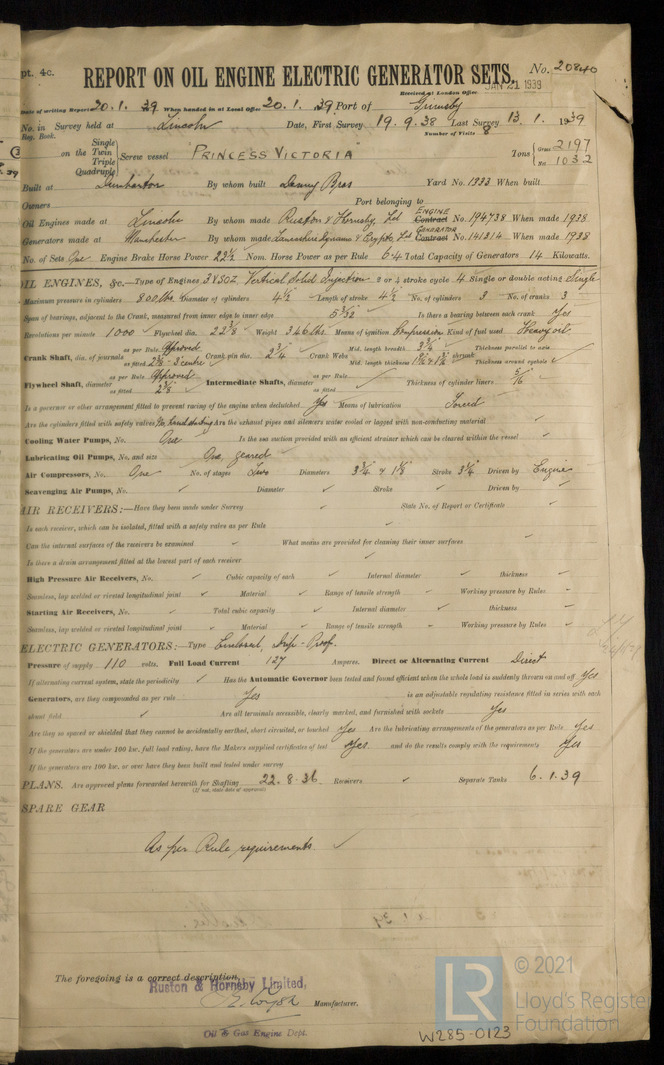 pt. 4c.
REPORT ON OIL ENGINE ELECTRIC GENERATOR SETS. No. 20840
Received at London Office JAN 21 1939
Date of writing Report 20.1.39 When handed in at Local Office 20.1.39 Port of Grimsby
No. in Survey held at Lincoln Date, First Survey 19.9.38 Last Survey 13.1.1939
Reg. Book. Number of Visits 8
on the Single Twin Triple Quadruple Screw vessel "PRINCESS VICTORIA" Tons Gross 2197 Net 1032
Built at Dumbarton By whom built Denny Bros Yard No. 1333 When built
Owners Port belonging to
Oil Engines made at Lincoln By whom made Ruston & Hornsby, Ltd ENGINE Contract No. 194738 When made 1938
Generators made at Manchester By whom made Lancashire Dynamo & Crypto, Ltd GENERATOR Contract No. 141214 When made 1938
No. of Sets One Engine Brake Horse Power 22½ Nom. Horse Power as per Rule 6.4 Total Capacity of Generators 14 Kilowatts.
OIL ENGINES, &c.—Type of Engines 3VSOZ Vertical Solid Injection 2 or 4 stroke cycle 4 Single or double acting Single
Maximum pressure in cylinders 800 lbs. Diameter of cylinders 4½ Length of stroke 4½ No. of cylinders 3 No. of cranks 3
Span of bearings, adjacent to the Crank, measured from inner edge to inner edge 5 3/32 Is there a bearing between each crank Yes
Revolutions per minute 1000 Flywheel dia. 22⅜ Weight 346 lbs Means of ignition Compression Kind of fuel used Heavy oil
Crank Shaft, dia. of journals as per Rule Approved as fitted 2⅜ 3 centre Crank pin dia. 2¾ Crank Webs Mid. length breadth 3¾ Mid. length thickness shrunk Thickness parallel to axis Thickness around eyehole
Flywheel Shaft, diameter as per Rule Approved as fitted 2⅜ Intermediate Shafts, diameter as per Rule as fitted Thickness of cylinder liners 5/16
Is a governor or other arrangement fitted to prevent racing of the engine when declutched Yes Means of lubrication Forced
Are the cylinders fitted with safety valves No hand starting Are the exhaust pipes and silencers water cooled or lagged with non-conducting material
Cooling Water Pumps, No. One Is the sea suction provided with an efficient strainer which can be cleared within the vessel
Lubricating Oil Pumps, No. and size One, geared
Air Compressors, No. One No. of stages Two Diameters 3¾ & 1⅛ Stroke 3¾ Driven by Engine
Scavenging Air Pumps, No. Diameter Stroke Driven by
AIR RECEIVERS:—Have they been made under Survey State No. of Report or Certificate
Is each receiver, which can be isolated, fitted with a safety valve as per Rule
Can the internal surfaces of the receivers be examined What means are provided for cleaning their inner surfaces
Is there a drain arrangement fitted at the lowest part of each receiver
High Pressure Air Receivers, No. Cubic capacity of each Internal diameter thickness
Seamless, lap welded or riveted longitudinal joint Material Range of tensile strength Working pressure by Rules
Starting Air Receivers, No. Total cubic capacity Internal diameter thickness
Seamless, lap welded or riveted longitudinal joint Material Range of tensile strength Working pressure by Rules
ELECTRIC GENERATORS:—Type Enclosed, Drip-Proof.
Pressure of supply 110 volts. Full Load Current 127 Amperes. Direct or Alternating Current Direct
If alternating current system, state the periodicity Has the Automatic Governor been tested and found efficient when the whole load is suddenly thrown on and off Yes
Generators, are they compounded as per rule Yes is an adjustable regulating resistance fitted in series with each
shunt field Are all terminals accessible, clearly marked, and furnished with sockets Yes
Are they so spaced or shielded that they cannot be accidentally earthed, short circuited, or touched Yes Are the lubricating arrangements of the generators as per Rule Yes
If the generators are under 100 kw. full load rating, have the Makers supplied certificates of test Yes and do the results comply with the requirements Yes
If the generators are 100 kw. or over have they been built and tested under survey
PLANS. Are approved plans forwarded herewith for Shafting 22.8.36 Receivers Separate Tanks 6.1.39
(If not, state date of approval)
SPARE GEAR
As per Rule requirements
The foregoing is a correct description,
Ruston & Hornsby Limited,
Manufacturer.
Oil & Gas Engine Dept.
W285-0123
LR © 2021
Lloyd's Register
Foundation